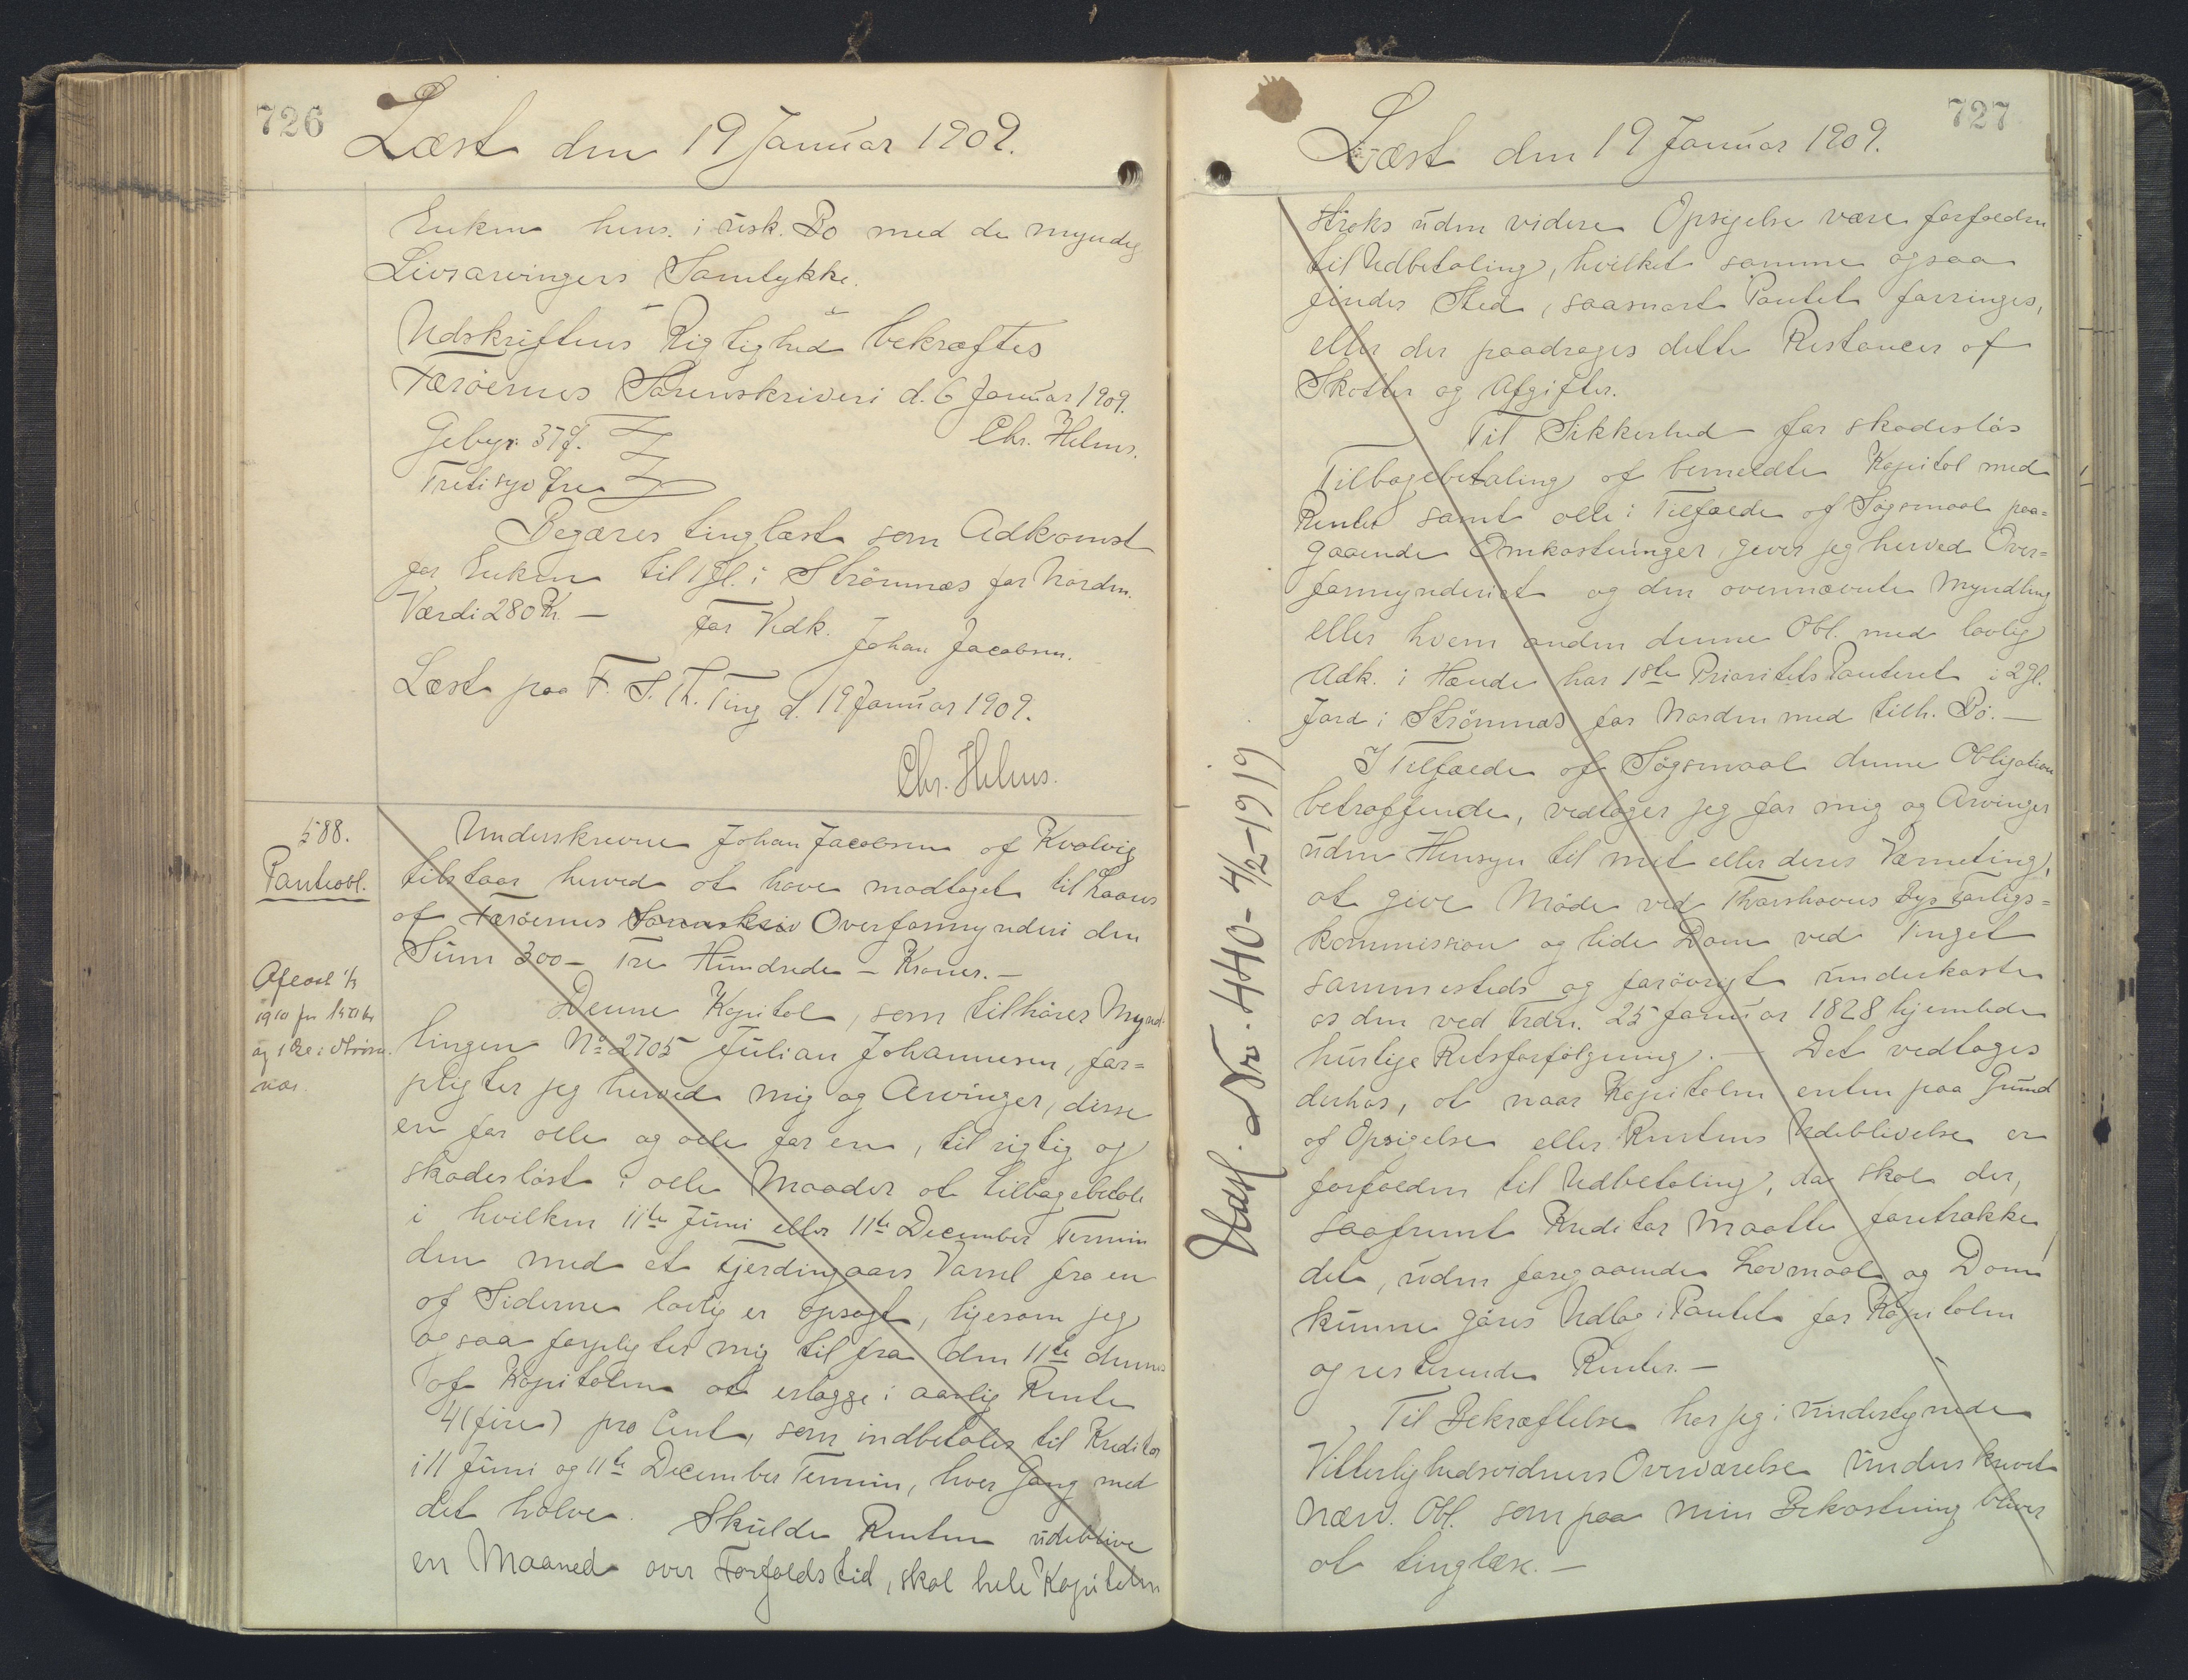 726
Læst den 19 Januar 1909.
Enken hens. i uisk. Bo med de myndig
Livsarvingers Samtykke.
Udskriftens Rigtighed bekræftes
Færøernes Sorenskriveri d. 6 Januar 1909.
Gebyr 37 Ø. Chr. Helms.
Tretisyv Øre
Begæres tinglæst som Adkomst
for Enken til 1 Gl. i Strømnæs for Norden.
Værdi 280 Kr. — For Vedk. Johan Jacobsen.
Læst paa F. S. Th. Ting d. 19 Januar 1909.
Chr. Helms.
588.
Panteobl.
Underskrevne Johan Jacobsen af Kvalvig
tilstaar herved at have modtaget til Laans
af Færøernes Sorenskriv Overformynderi den
Sum 300 – Tre Hundrede – Kroner. –
Aflæst 1/3
1910 for 150 Kr
og 1 Gl. i Strøm-
næs.
Denne Kapital, som tilhører Mynd-
lingen No 2705 Julian Johannesen, for=
pligter jeg herved mig og Arvinger, disse
en for alle og alle for en, til rigtig og
skadesløst i alle Maader at tilbagebetale
i hvilken 11te Juni eller 11te December Termin
den med et Fjerdingaars Varsel fra en
af Siderne lovlig er opsagt, ligesom jeg
ogsaa forpligter mig til fra den 11te dennes
af Kapitalen at erlægge i aarlig Rente
4 (fire) pro Cent, som indbetales til Kreditor
i 11 Juni og 11te December Termin, hver Gang med
det halve. Skulde Renten udeblive
en Maaned over Forfaldstid, skal hele Kapitalen
727
Læst den 19 Januar 1909.
straks uden videre Opsigelse være forfalden
til Udbetaling, hvilket samme ogsaa
finder Sted, saasnart Pantet forringes,
eller der paadrages dette Restancer af
Skatter og Afgifter.
Til Sikkerhed for skadesløs
Tilbagebetaling af bemeldte Kapital med
Renter samt alle i Tilfælde af Søgsmaal paa=
gaaende Omkostninger, giver jeg herved Over=
formynderiet og den ovennævnte Myndling
eller hvem anden denne Obl. med lovlig
Adk. i Hænde har 1ste Prioritets Panteret i 2 Gl.
Jord i Strømnæs for Norden med tilh. Bø. —
I Tilfælde af Søgsmaal denne Obligation
betræffende, vedtager jeg for mig og Arvinger
uden Hensyn til mit eller deres Værneting,
at give Møde ved Thorshavns Bys Forligs=
kommission og lide Dom ved Tinget
sammesteds og forøvrigt underkaste
os den ved Frdn. 25 Januar 1828 hjemlede
hurtige Retsforfølgning. — Det vedtages
derhos, at naar Kapitalen enten paa Grund
af Opsigelse eller Rentens Udeblivelse er
forfalden til Udbetaling, da skal der,
saafremt Kreditor maatte foretrække
det, uden foregaaende Lovmaal og Dom
kunne gøres Udlæg i Pantet for Kapitalen
og resterende Renter. —
Til Bekræftelse har jeg i undertegnede
Vitterlighedsvidners Overværelse underskrevet
nærv. Obl. som paa min Bekostning bliver
at tinglæse. —
Udsl. Nr. 440 - 4/2 - 1919